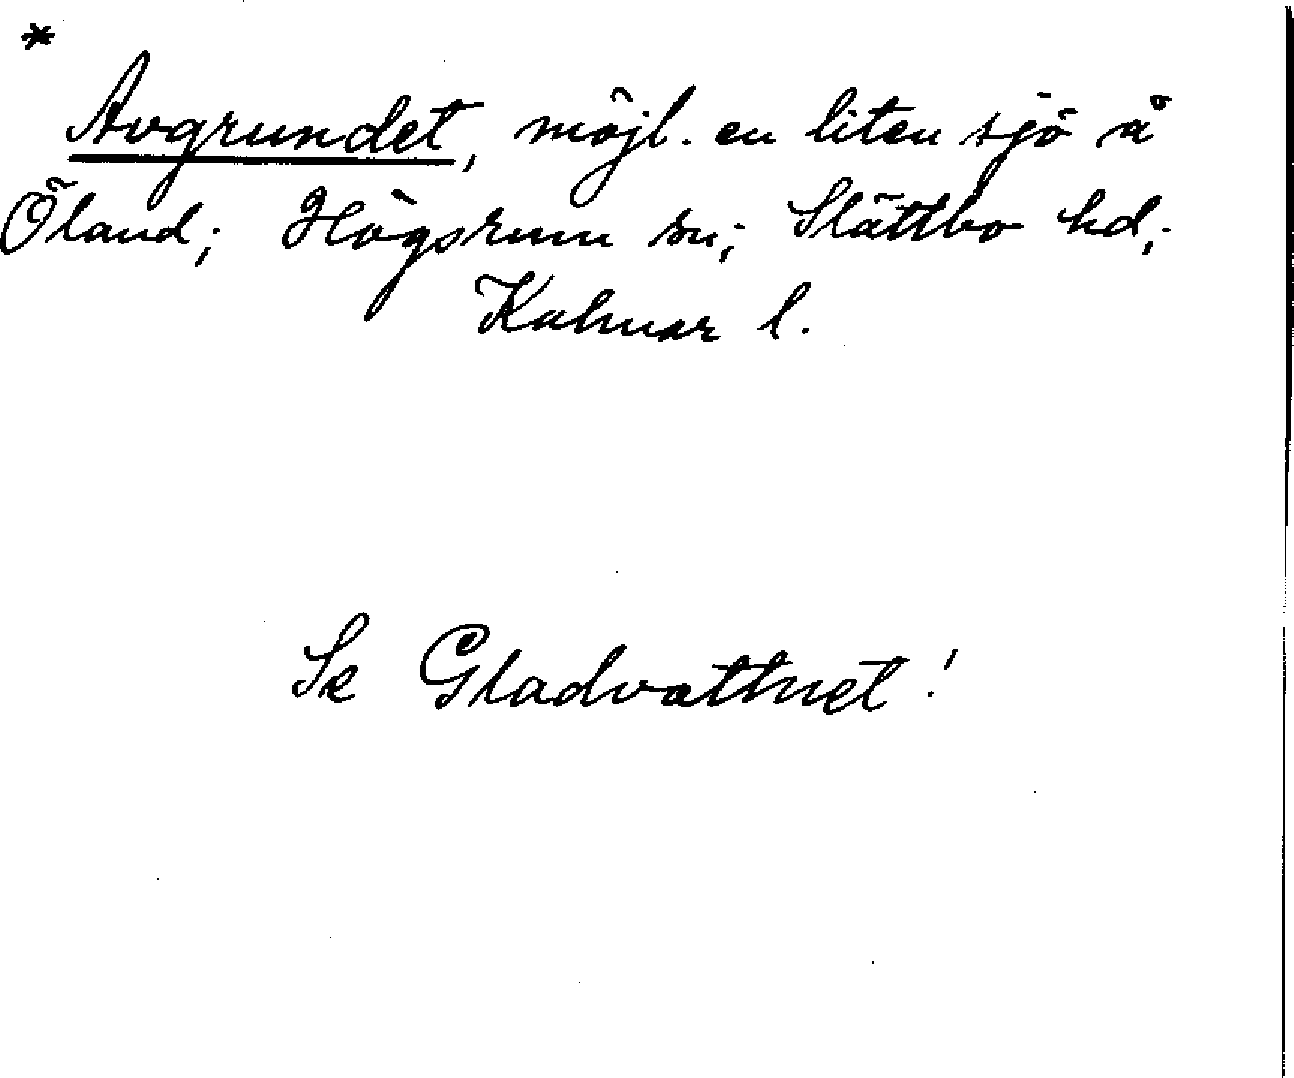 *
Avgrundet, möjl. en liten sjö å
Öland; Högsrum sn; Slättbo hd;
Kalmar l.
Se Gladvattnet!